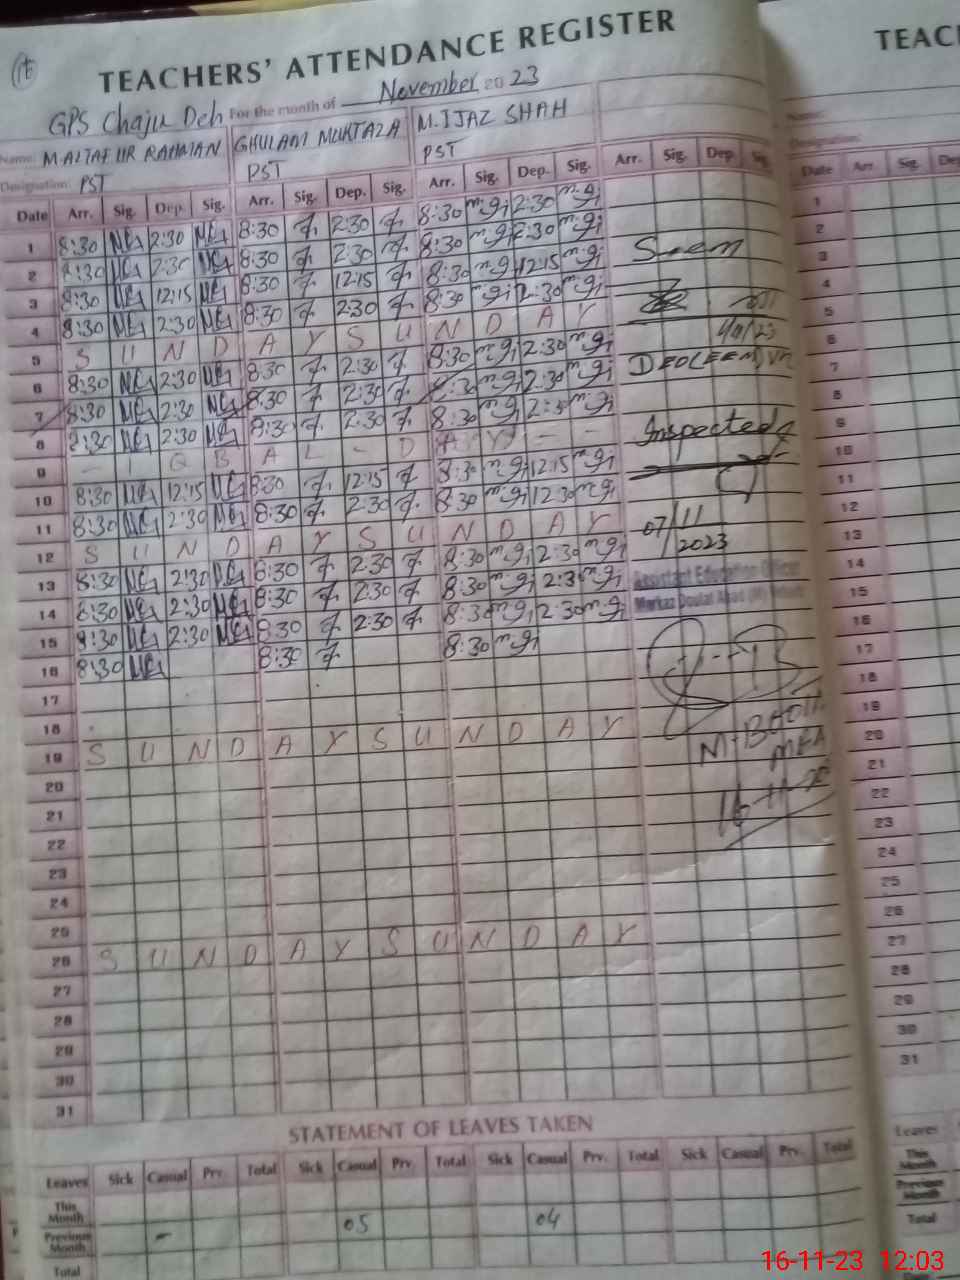 TEACHERS' ATTENDANCE REGISTER
TEAC
GPS Chaju Deh For the month of November 2023
Name: M ALTAF UR RAHMAN GHULAM MURTAZA M. IJAZ SHAH
Designation: PST PST PST
Date Arr. Sig. Dep. Sig. Arr. Sig. Dep. Sig. Arr. Sig. Dep. Sig. Arr. Sig. Dep. Sig.
1 8:30 2:30 8:30 2:30 8:30 2:30
2 8:30 2:30 8:30 2:30 8:30 2:30
3 8:30 12:15 8:30 12:15 8:30 12:15
4 8:30 2:30 8:30 2:30 8:30 2:30
5 S U N D A Y S U N D A Y
6 8:30 2:30 8:30 2:30 8:30 2:30
7 8:30 2:30 8:30 2:30 8:30 2:30
8 8:30 2:30 8:30 2:30 8:30 2:30
9 - I Q B A L - D A Y - -
10 8:30 12:15 8:30 12:15 8:30 12:15
11 8:30 2:30 8:30 2:30 8:30 12:30
12 S U N D A Y S U N D A Y
13 8:30 2:30 8:30 2:30 8:30 2:30
14 8:30 2:30 8:30 2:30 8:30 2:30
15 8:30 2:30 8:30 2:30 8:30 2:30
16 8:30 8:30 8:30
17
18
19 S U N D A Y S U N D A Y
20
21
22
23
24
25
26 S U N D A Y S U N D A Y
27
28
29
30
31
Seen
Inspected
07/11/2023
Assistant Education Officer
Markaz
16-11-23
STATEMENT OF LEAVES TAKEN
Leaves Sick Casual Prv. Total Sick Casual Prv. Total Sick Casual Prv. Total Sick Casual Prv. Total
This Month
Previous Month - 05 04
Total
Name:
Designation:
Date Arr. Sig. Dep
1
2
3
4
5
6
7
8
9
10
11
12
13
14
15
16
17
18
19
20
21
22
23
24
25
26
27
28
29
30
31
Leaves
This Month
Previous Month
Total
16-11-23 12:03